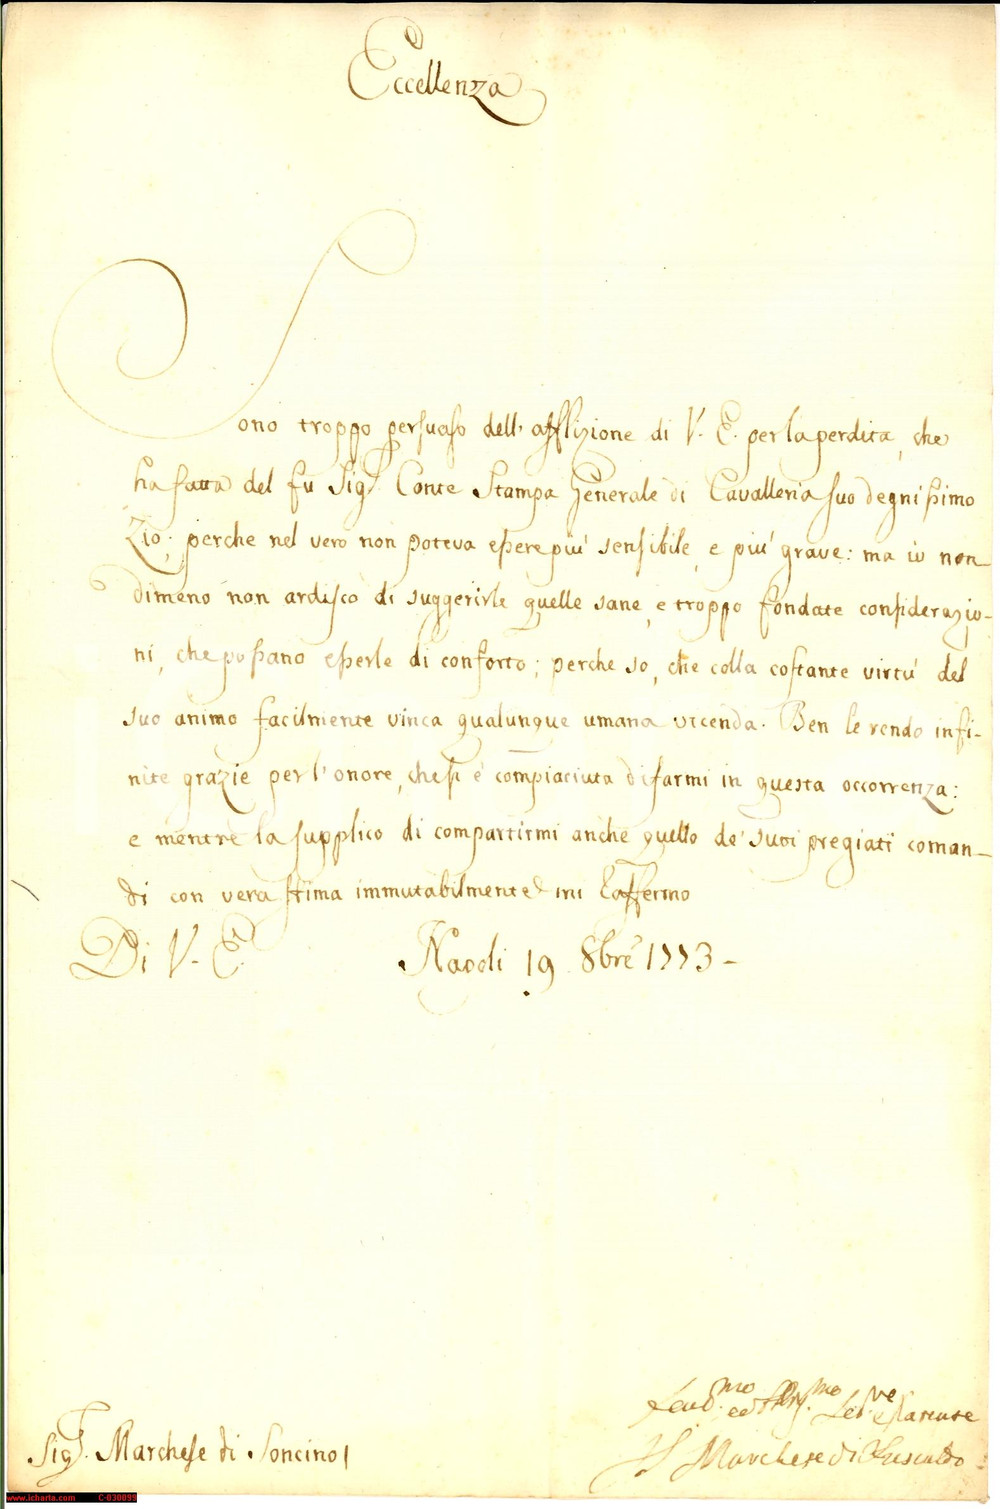 Eccellenza
Sono troppo persuaso dell' afflizione di V. E. per la perdita, che
ha fatta del fu Sig.r Conte Stampa Generale di Cavalleria suo degnissimo
Zio; perche nel vero non poteva essere piu' sensibile, e piu' grave: ma io non
dimeno non ardisco di suggerirle quelle sane, e troppo fondate considerazio-
ni, che possano esserle di conforto; perche so, che colla costante virtu' del
suo animo facilmente vinca qualunque umana vicenda. Ben le rendo infi-
nite grazie per l' onore, che si e' compiaciuta di farmi in questa occorrenza:
e mentre la supplico di compartirmi anche quello de' suoi pregiati coman-
di con vera stima immutabilmente mi raffermo
Di V. E. Napoli 19 8bre 1773 -
Sig.r Marchese di Soncino
Il Marchese di
www.icharta.com C-030099